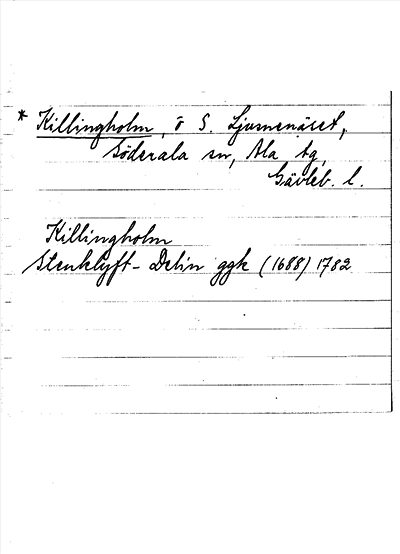 * Killingholm, ö S. Ljusnenäset,
Söderala sn, Ala tg,
Gävleb. l.
Killingholm
Stenklyft - Delin ggk (1688) 1782